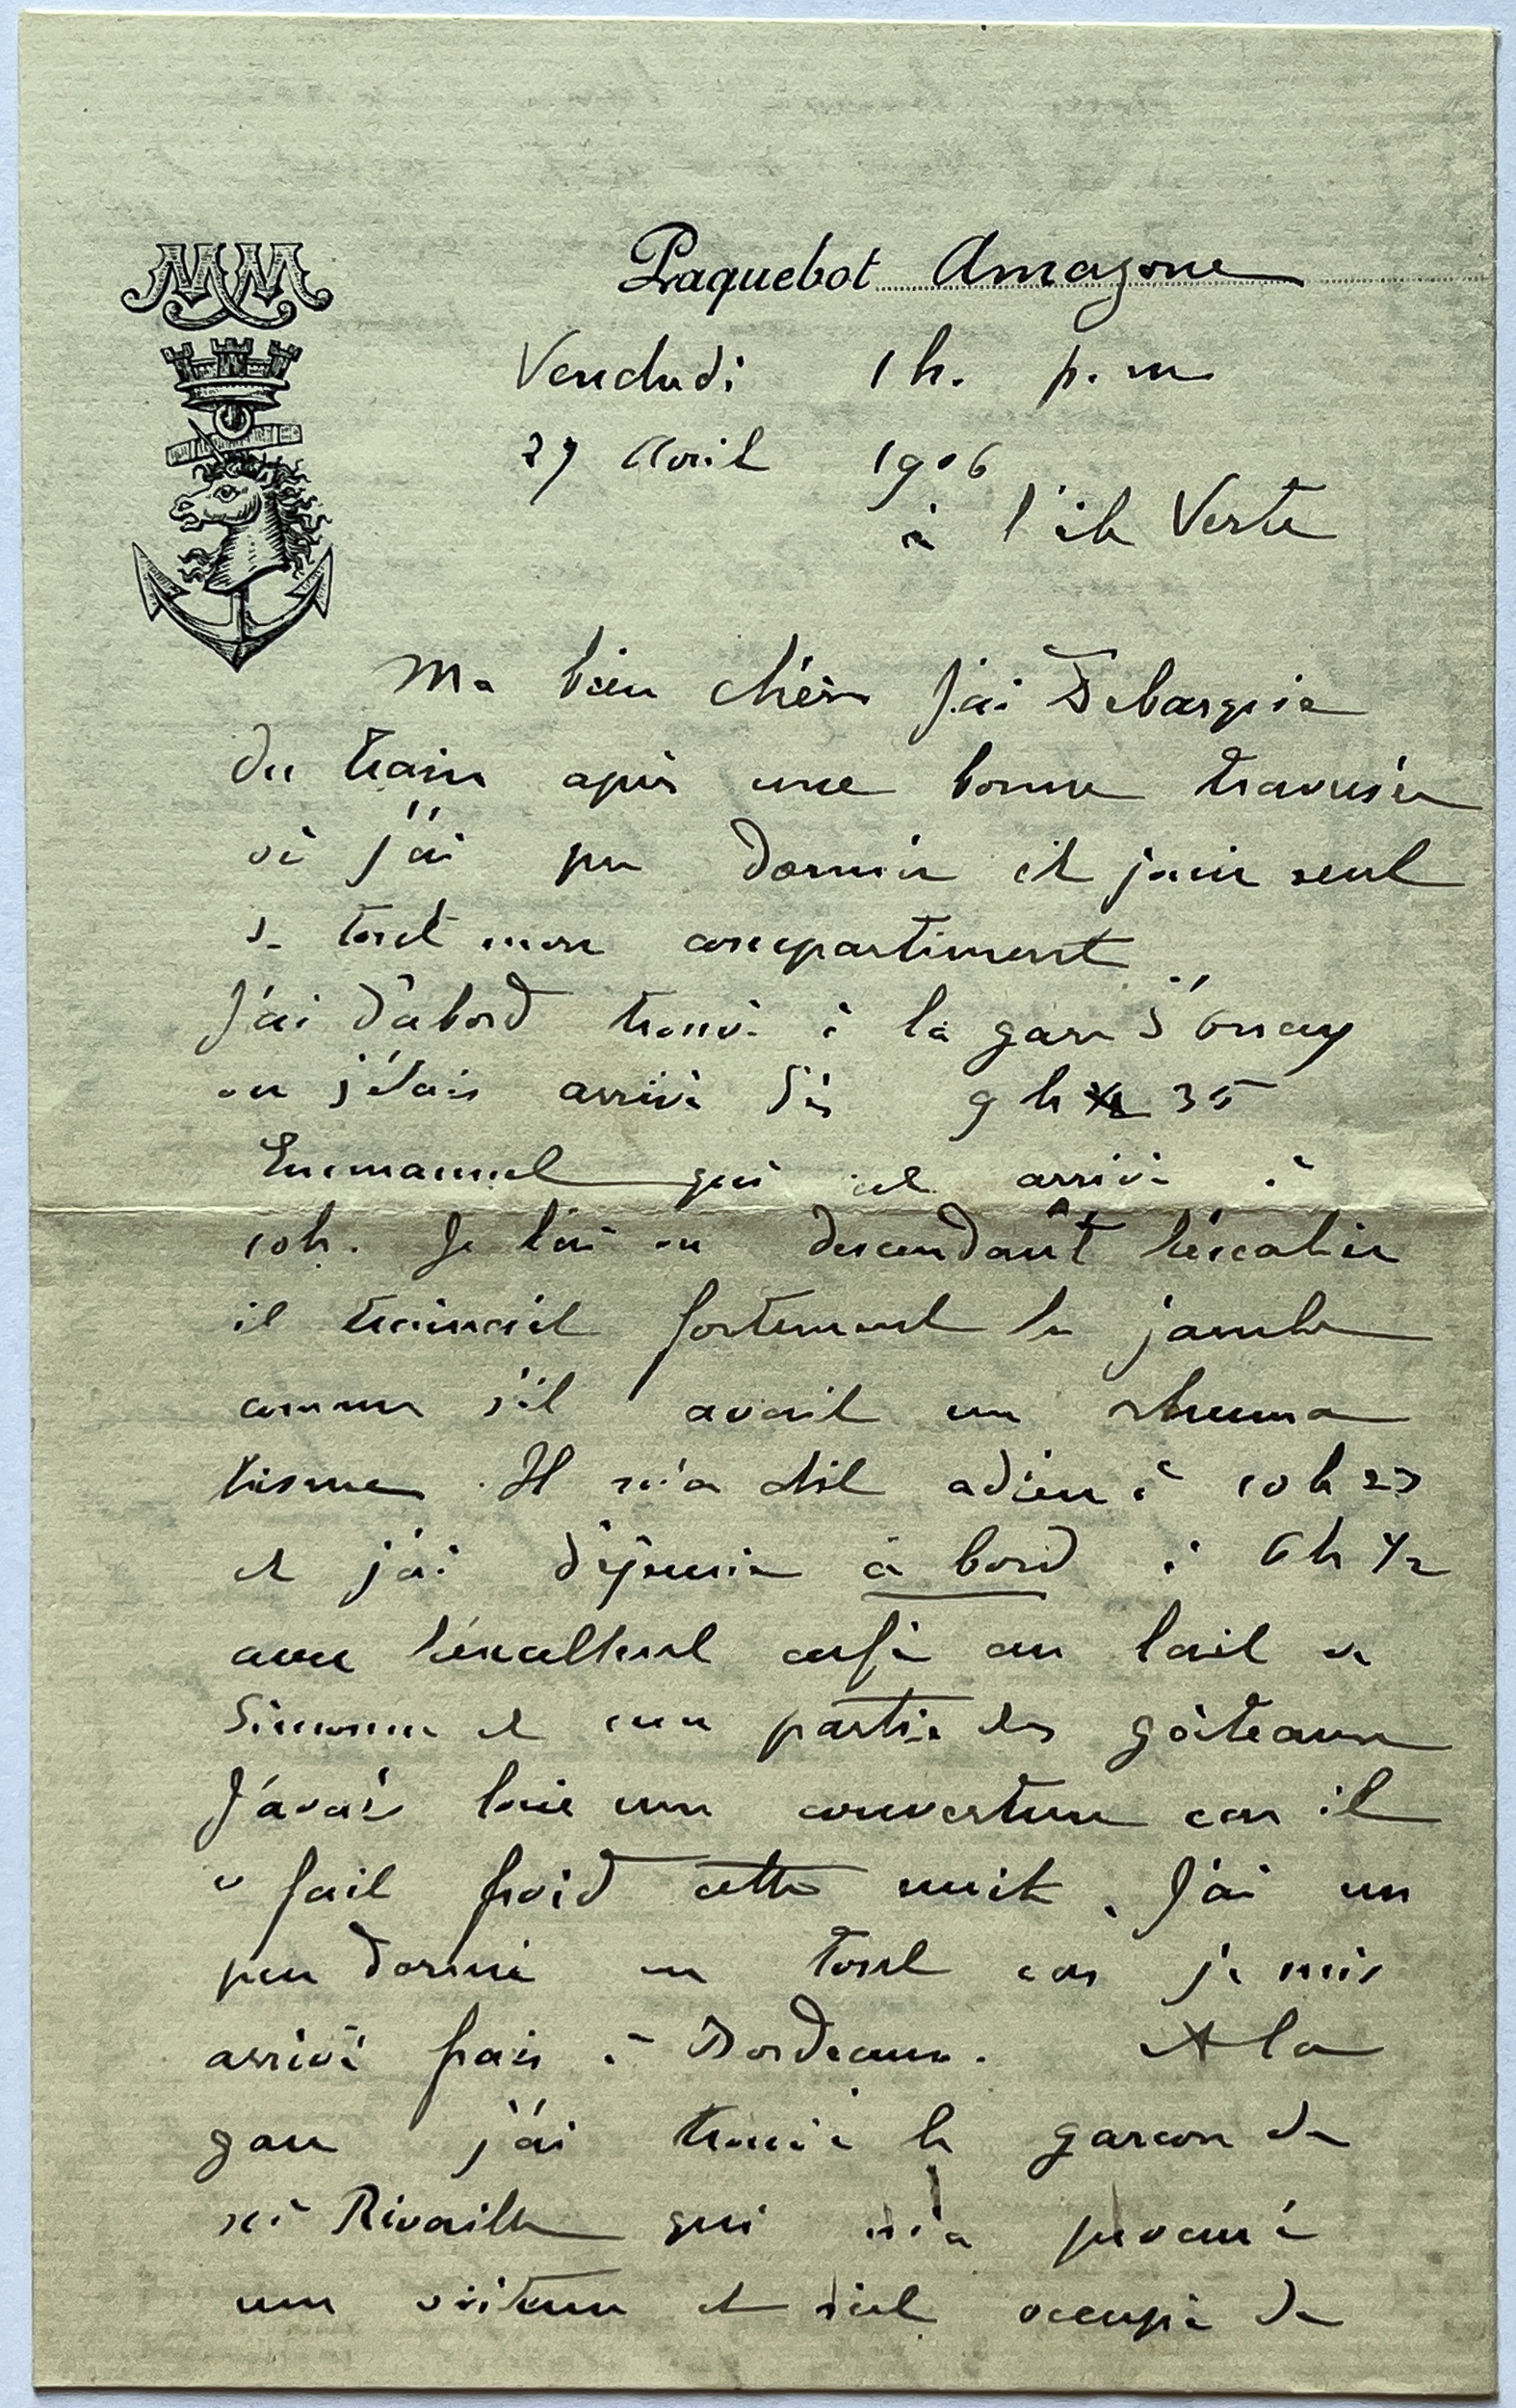 MM
Paquebot Amazone
Vendredi 1 h. p. m
27 Avril 1906
à l'île Verte
Ma bien chère J'ai Debarqué
du train après une bonne traversée
où j'ai pu dormir et j'avais seul
tout mon compartiment
J'ai d'abord trouvé à la gare d'Orsay
où j'étais arrivé dès 9 h 35
Emmanuel qui est arrivé à
10h. Je l'ai vu descendant l'escalier
il trainait fortement la jambe
comme s'il avait un rhuma
tisme. Il m'a dit adieu à 10 h 27
et j'ai déjeuné à bord à 6 h 1/2
avec l'excellent café au lait de
Simone et une partie des gâteaux
J'avais loué une couverture car il
a fait froid cette nuit. J'ai un
peu dormi en tout cas je suis
arrivé frais à Bordeaux. A la
gare j'ai trouvé le garçon de
Rivaille qui m'a procuré
une voiture et s'est occupé de